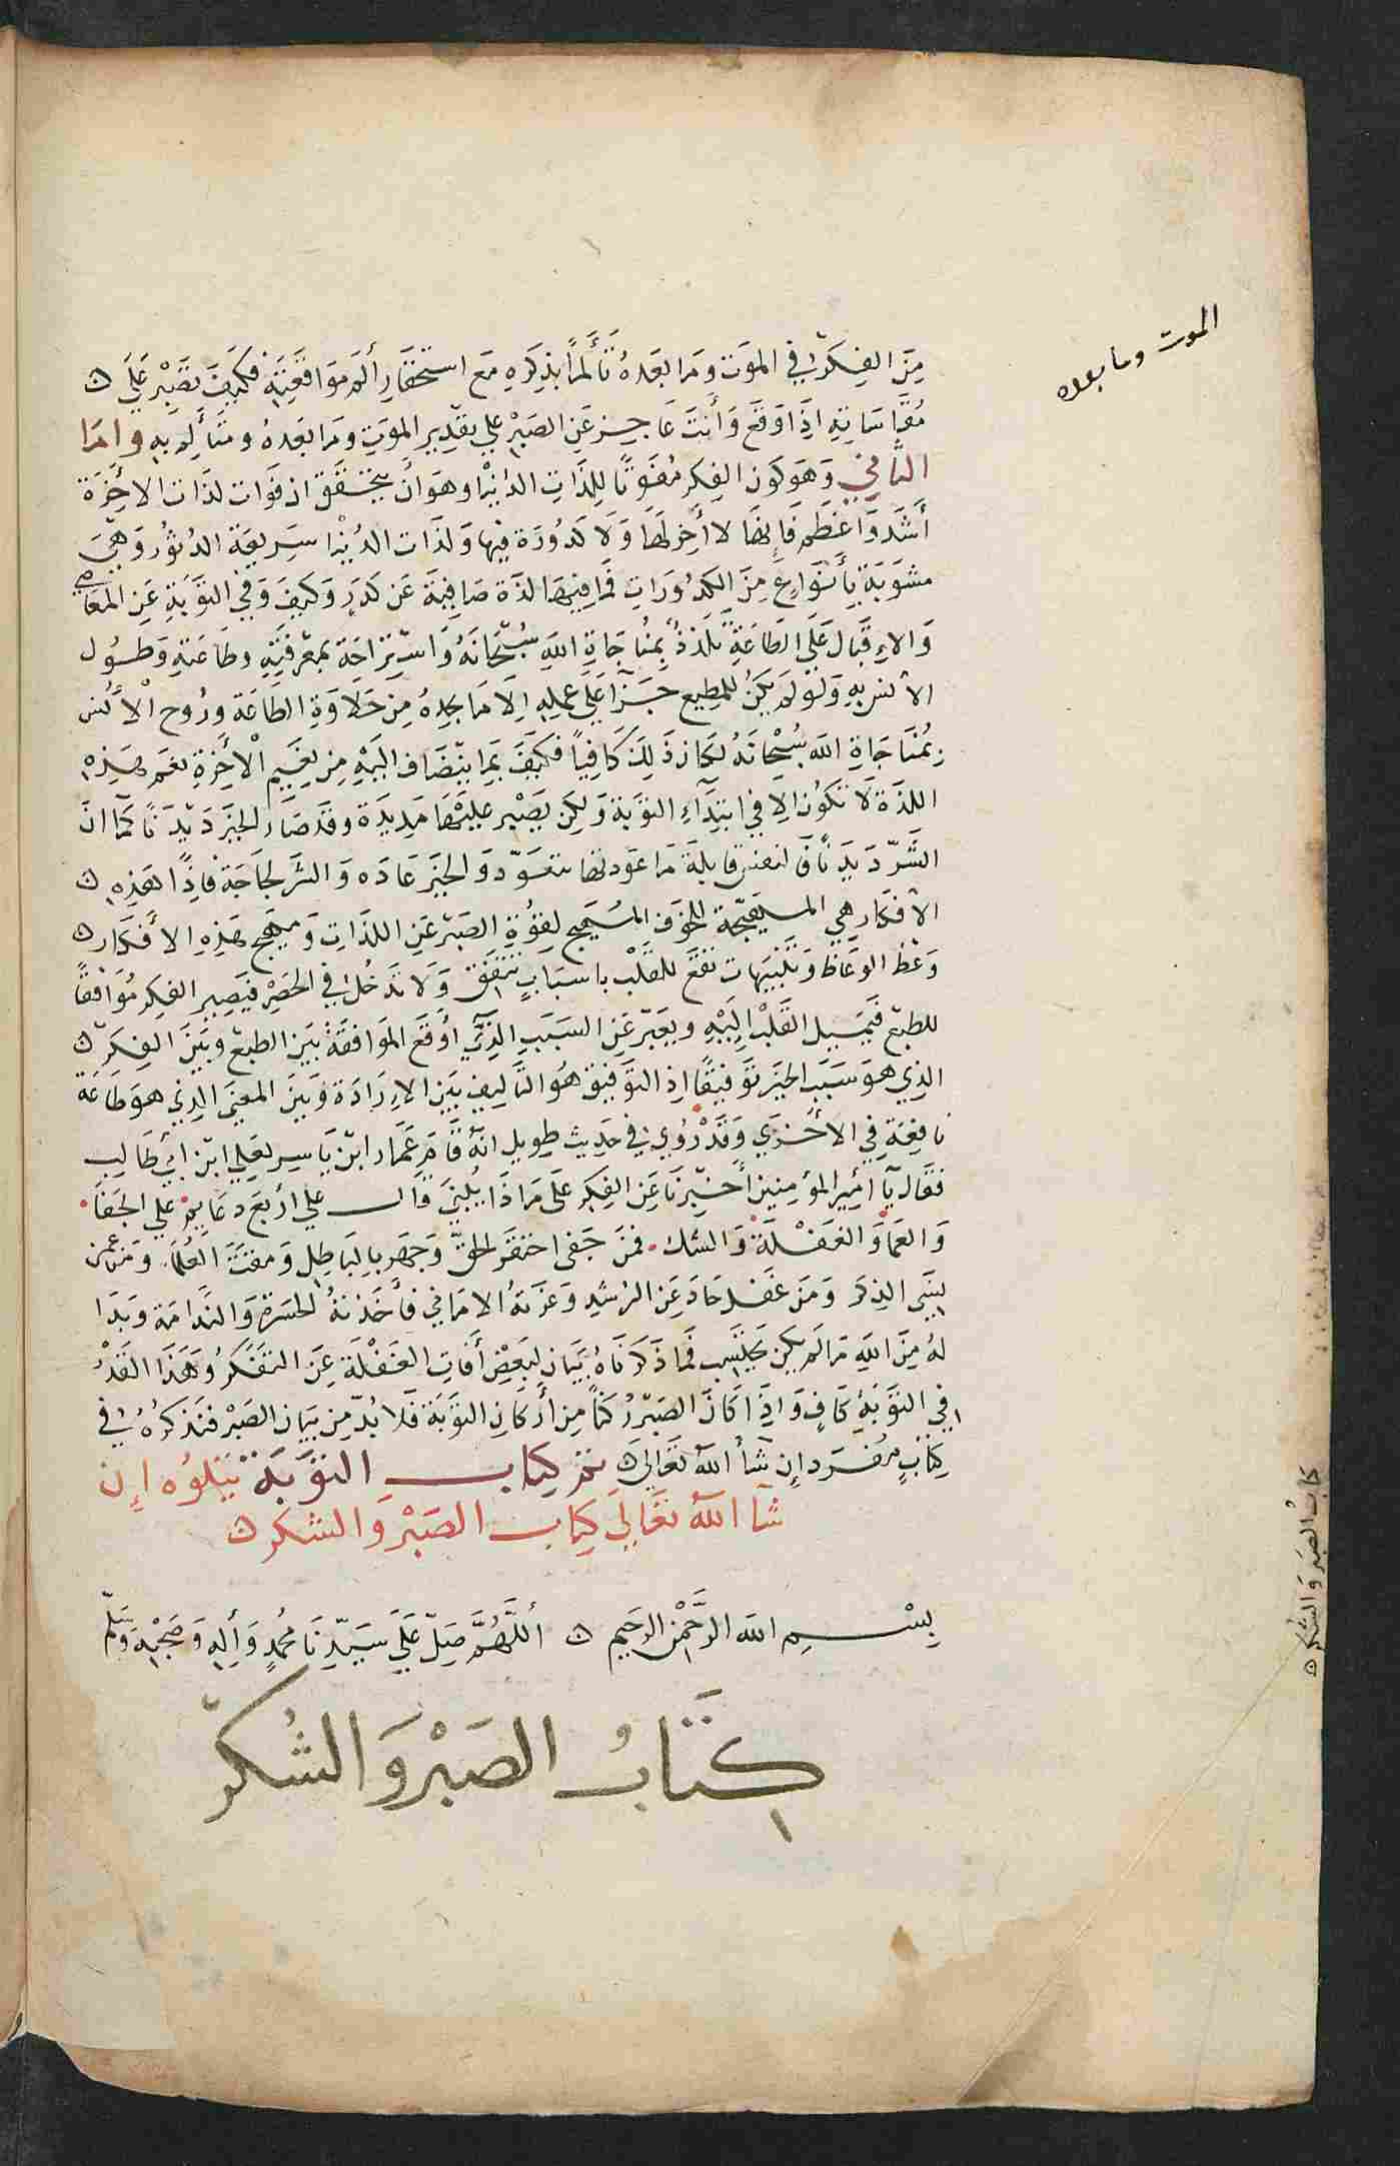 الموت وما بعده
مِنَ الفِكرِ في الموَت وَمَا بَعَدهُ تَأَلمُاً بذِكرَهِ مَعَ استحقَارِ ألَم مَوَاقعَتِهِ فكَيفَ يصَبْر عَلَى
مُقَاسَاتهِ اذَا وَقَعَ وَأنتَ عَاجِز عَنِ الصَبْر علي تقدِير الموَتِ ومَا بعَدهُ ومتَألِم بهِ وامَا
الثَّاني وَهَو كَون الفِكر مُفَوتًا لِلذَاتِ الدُنْيا وهَوَ انْ يتحَقَّق ان فَوَات لذَات الاخِرَة
أشَد وَأعْظَم فَانهَا لا أخِر لهَا وَلا كدُورَة فيهَا وَلذَات الدُنيْا سَرِيعَة الدثُور وَهِيَ
مشوَبَة بأنوَاعِ مِنَ الكدُورَاتِ فمَا فيهَا لذَة صَافِيَة عَن كدَرٍ وَكيفَ وَفي التوَبَةِ عَنِ المعَاصي
وَالاءِقبَال عَلَي الطَاعَةِ تَلذذُ بمِنَاجَاةِ اللهِ سُبْحَانَهُ وَاسْتِرَاحَة بمعْرفَتِهِ وطَاعَتهِ وَطُول
الأنس بهِ وَلوَ لَم يكنُ للمطِيع جَزَآ عَلَي عملِهِ اِلَا مَا يجِدهُ مِن حَلَاوَةِ الطَاعَة وَرُوح الأنُس
بِمُنَاجَاةِ الله سُبْحَانَهُ لكَان ذَلِكَ كَافِياً فكيَفَ بمَا ينضَاف اليَهِ مِن نعَيم الاخِرَةِ نعَم هَذِهِ
اللذَة لَا تَكُون الا في ابتدَآءِ التوَبَة وَلكِن يصَبْر عليَهَا مَدِيدَة وقَد صَار الخيَر دَيْدَنًا كمَا ان
الشَّر دَيدَنًا فَالنفس قابلَة مَا عَودتهَا تتعَوّد وَالخيَر عَادَه وَالشَّر لجَاجَة فاذًا هَذِهِ
الأفكار هِي المهيجَة للخَوَف المُهَيج لقوُةِ الصَبْر عَنِ اللذَاتِ وَمهيج هَذِهِ الأفكَار
وَعْظ الوعَاظ وَتَنْبِيَهات تقعَ للقَلْب باسبَابٍ تتَفَق وَلَا تَدخُل في الحَصِر فيَصِير الفِكر مُوَافقًا
للطبْع فَيميِل القَلْب اِليَهِ ويعَبّر عَنِ السَبَب الذِّي أوقَعَ الموَافقَةُ بيَن الطبْع وبيَن الفِكر
الذِي هوَ سَبَب الخيَر توَفيقًا اذِ التوَفيق هُوَ التَاليِف بَيَن الاِرَادَة وَبيَنَ المعنَي الذِي هوَ طَاعَة
نافِعَة فِي الأخْرَي وَقَدْ رُوِي في حَديث طوِيل انهُ قَامَ عَمَار ابْن يَاسِر لعَلي ابْن أبي طَالِب
فقَال يَآ أمِير المؤمِنين أخبِرنَا عَنِ الفِكر عَلَي مَاذَا بُلِنيَ قَالَ علي أربَع دعَايم علي الجفَا
وَالعَمَا وَالغَفْلَة وَالشك فمَن جَفَى احتقَر الحقّ وَجهَر بالبَاطِل وَمقتَ العُلَمَا وَمَن عمىَ
ينسَي الذكرَ وَمَن غفَل حَادَ عَنِ الرُشدِ وَغرتهُ الامَاني فأخَذتهُ الحَسَرة وَالنَّدَامَة وَبَدَا
لهُ مِنَ اللهِ مَا لَم يكن يحتَسِب فمَا ذَكرنَاهُ بَيَان لبَعضِ أفَاتِ الغَفْلَة عَنِ التفَكرُ وَهَذَا القَدْرُ
في التوَبَةِ كَافٍ وَاذِ اكَانَ الصَبْر رُكنًا مِن أركَان التوَبَة فَلَا بُدّ مِن بَيان الصَبْر فنَذكرُهُ في
كِتَابٍ مُفَرَد اِن شَأ اللهُ تعَالَى تم كِتَاب التوَبَة يتلوُه إن
شَآ اللهُ تعَالَي كِتاب الصَبْر وَالشكر
بِسْمِ الله الرَّحْمَن الرحَيم أللَّهُمَّ صَلّ عَلَي سَيّدِنَا مُحُمدٍ وَألِهِ وَصَحْبَهِ وَسَلّم
كِتَابُ الصَبْر وَالشُكر
كتابُ الصَبر وَالشكر